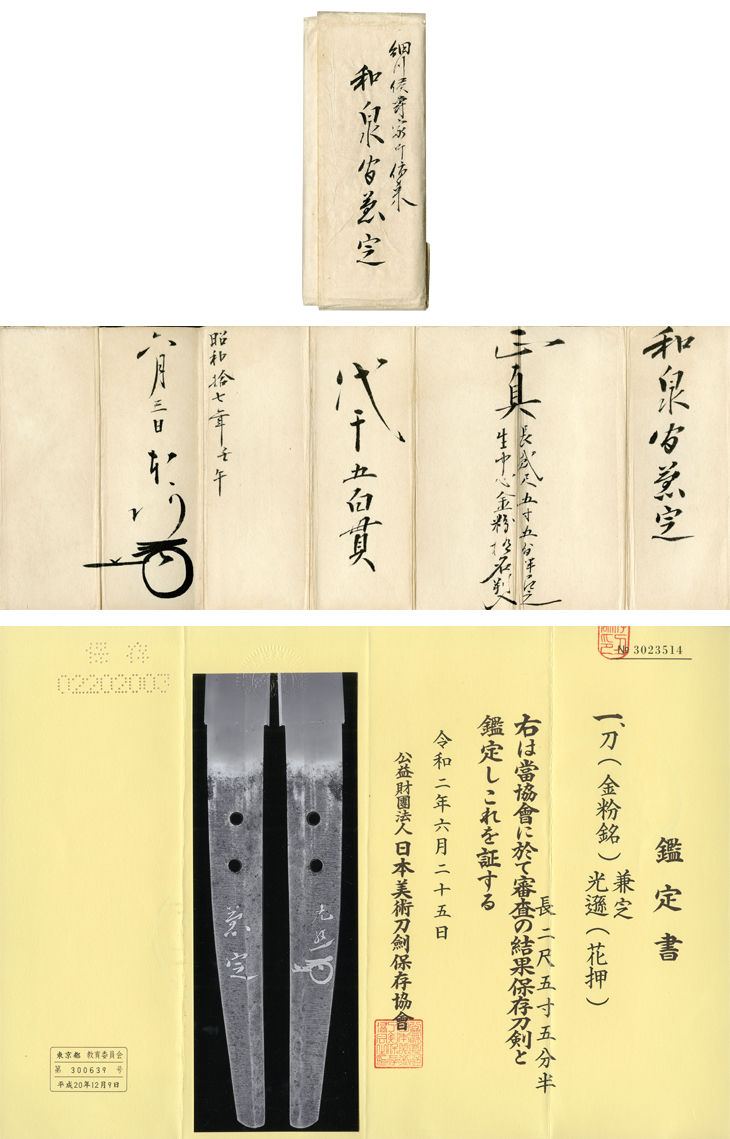 細川侯爵家伝来
和泉守兼㝎
和泉守兼㝎
正真
長弐尺五寸五分半有之
生中心金粉名判入
代千五百貫
昭和拾七年壬午
六月三日
№ 3023514
鑑定書
一、刀(金粉銘)兼㝎
光遜(花押)
長二尺五寸五分半
右は當協會に於て審査の結果保存刀剣と
鑑定しこれを証する
令和二年六月二十五日
公益財團法人日本美術刀劍保存協會
兼㝎
光遜
保存
02202003
東京都 教育委員会
第 300639 号
平成20年12月9日